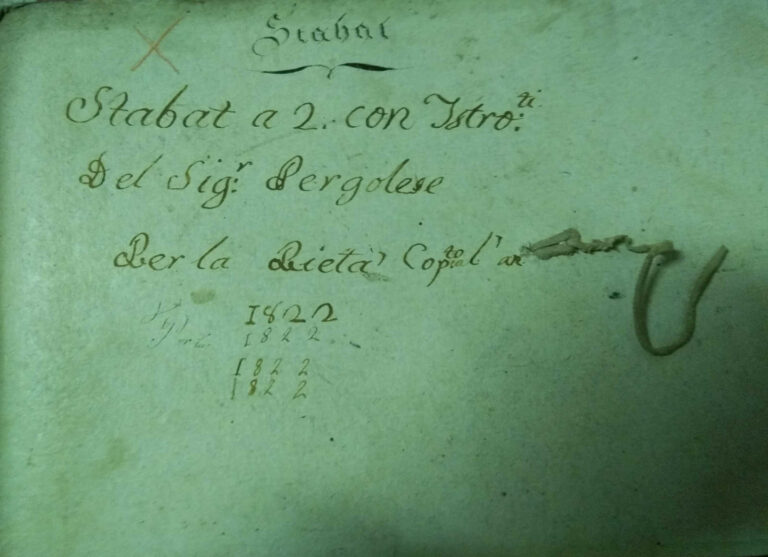 Stabat
Stabat a 2. con Istro.ti
Del Sig.r Pergolese
Per la Pietà Cop.to l'an
1822
1822
1822
1822